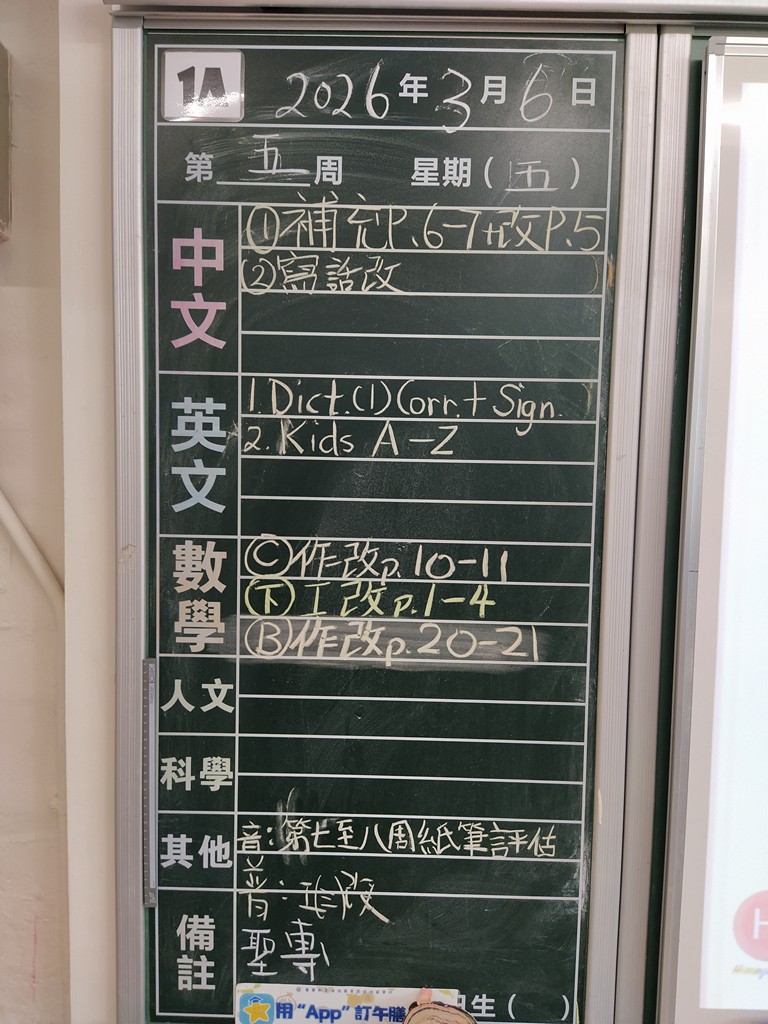 1A 2026年3月6日
第五周 星期(五)
中文
①補充P.6-7+改P.5
②寫話改
英文
1. Dict.(1) Corr. + Sign.
2. Kids A-Z
數學
Ⓒ作改p.10-11
㊦工改p.1-4
Ⓑ作改p.20-21
人文
科學
其他
音:第七至八周紙筆評估
普:改
備註
聖專
用“App”訂午膳
生( )
H